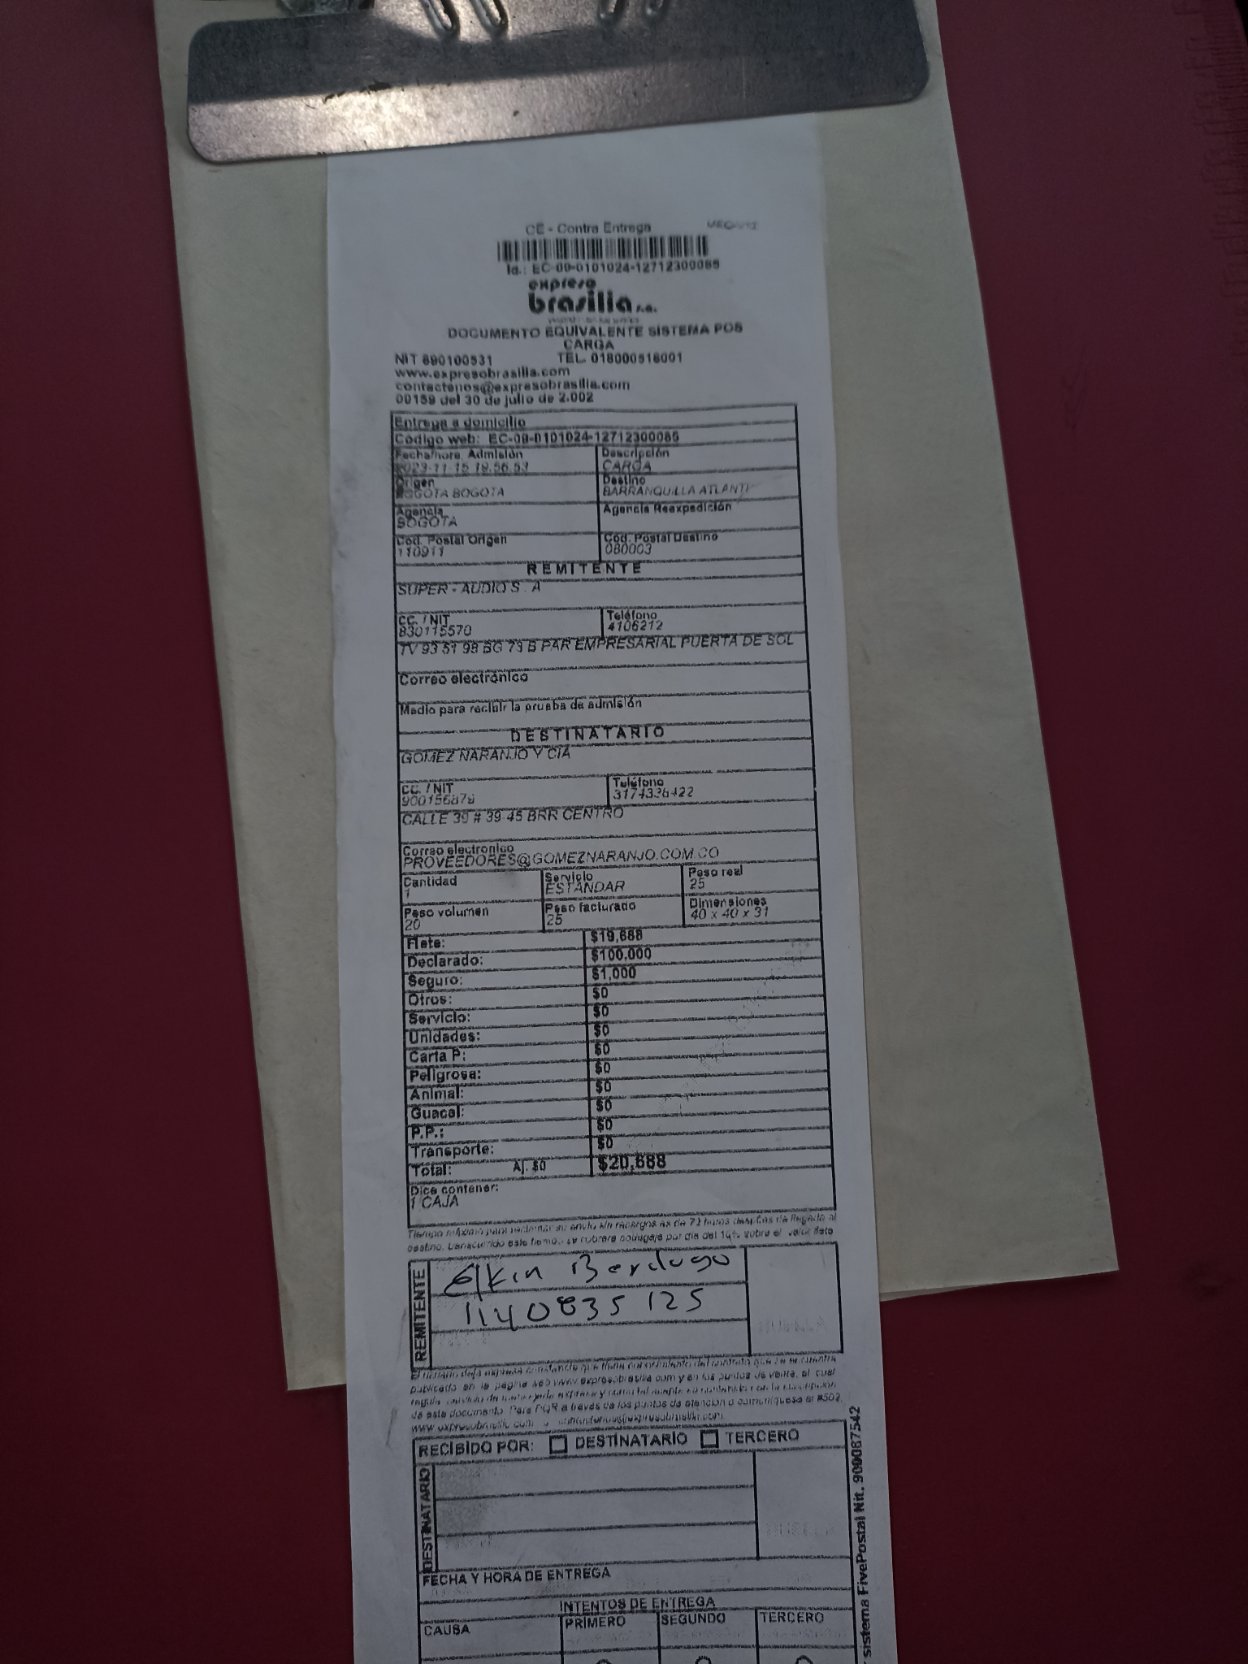 CE - Contra Entrega
Id.: EC-09-0101024-12712300085
expreso
brasilia s.a.
DOCUMENTO EQUIVALENTE SISTEMA POS
CARGA
NIT 890100531 TEL. 018000518001
www.expresobrasilia.com
contactenos@expresobrasilia.com
00159 del 30 de julio de 2.002
Entrega a domicilio
Codigo web: EC-09-0101024-12712300085
Fecha/hora. Admisión Descripción
2023-11-15 CARGA
Origen Destino
BOGOTA BOGOTA BARRANQUILLA ATLANTI
Agencia Agencia Reexpedición
BOGOTA
Cod. Postal Origen Cod. Postal Destino
110911 080003
REMITENTE
SUPER - AUDIO S . A
CC. / NIT Teléfono
830115570 4106212
TV 93 51 98 BG 73 B PAR EMPRESARIAL PUERTA DE SOL
Correo electrónico
Medio para recibir la prueba de admisión
DESTINATARIO
GOMEZ NARANJO Y CIA
CC. / NIT Teléfono
900156878 3174336422
CALLE 39 # 39 45 BRR CENTRO
Correo electronico
PROVEEDORES@GOMEZNARANJO.COM.CO
Cantidad Servicio Peso real
1 ESTANDAR 25
Peso volumen Peso facturado Dimensiones
20 25 40 x 40 x 31
Flete: $19,688
Declarado: $100,000
Seguro: $1,000
Otros: $0
Servicio: $0
Unidades: $0
Carta P: $0
Peligrosa: $0
Animal: $0
Guacal: $0
P.P.: $0
Transporte: $0
Total: Aj. $0 $20,688
Dice contener:
1 CAJA
REMITENTE
Elkin Berdugo
1140835125
RECIBIDO POR: DESTINATARIO TERCERO
DESTINATARIO
FECHA Y HORA DE ENTREGA
INTENTOS DE ENTREGA
CAUSA PRIMERO SEGUNDO TERCERO
sistema FivePostal Nit. 900087542